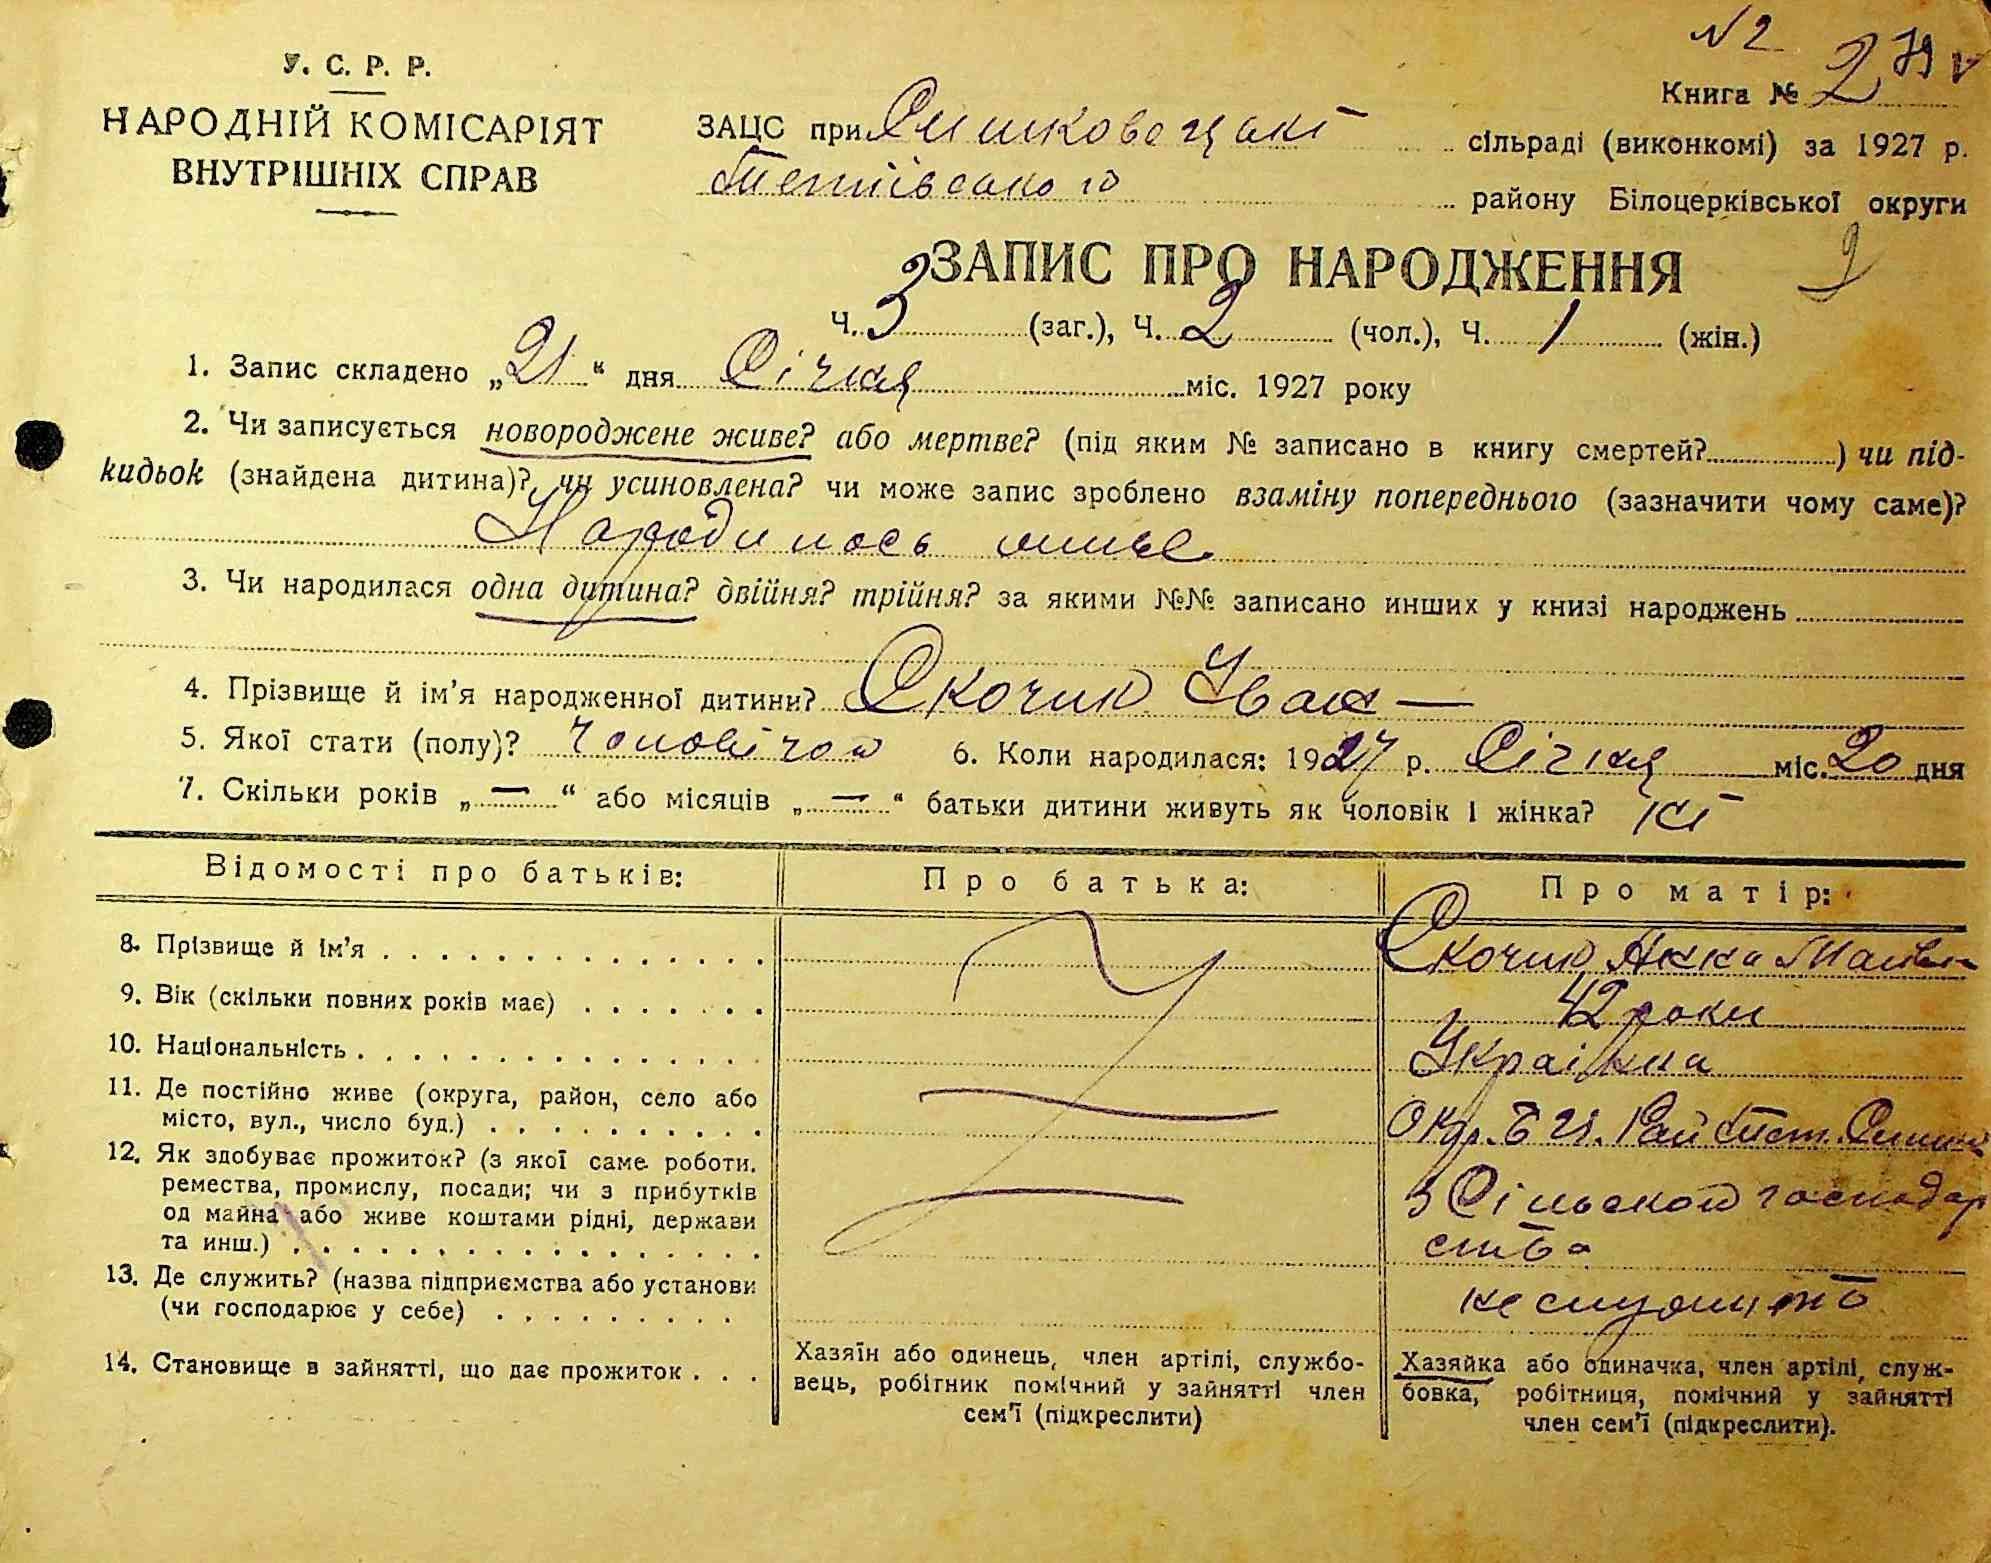 № 2
279
У. С. Р. Р.
Книга № 2
НАРОДНІЙ КОМІСАРІЯТ
ВНУТРІШНІХ СПРАВ
ЗАЦС при сільраді (виконкомі) за 1927 р.
Тетіївського району Білоцерківської округи
ЗАПИС ПРО НАРОДЖЕННЯ
Ч. 3 (заг.), Ч. 2 (чол.), Ч. 1 (жін.)
1. Запис складено „21“ дня Січня міс. 1927 року
2. Чи записується новороджене живе? або мертве? (під яким № записано в книгу смертей? ) чи під-
кидьок (знайдена дитина)?, чи усиновлена? чи може запис зроблено взаміну попереднього (зазначити чому саме)?
Народилось живе
3. Чи народилася одна дитина? двійня? трійня? за якими №№ записано инших у книзі народжень
4. Прізвище й ім’я народженної дитини? Скочик Іван —
5. Якої стати (полу)? Чоловічої 6. Коли народилася: 1927 р. Січня міс. 20 дня
7. Скільки років „ — “ або місяців „ — “ батьки дитини живуть як чоловік і жінка? Ні
Відомості про батьків: Про батька: Про матір:
8. Прізвище й ім’я Скочик Анна
9. Вік (скільки повних років має) 42 роки
10. Національність Українка
11. Де постійно живе (округа, район, село або
місто, вул., число буд.) Окр. Б Ц. Рай Тет.
12. Як здобуває прожиток? (з якої саме роботи,
ремества, промислу, посади; чи з прибутків
од майна або живе коштами рідні, держави
та инш.) З Сільского господар
ства
13. Де служить? (назва підприємства або установи
(чи господарює у себе)
14. Становище в зайнятті, що дає прожиток . . .
Хазяїн або одинець, член артілі, службо-
вець, робігник помічний у зайнятті член
сем’ї (підкреслити)
Хазяйка або одиначка, член артілі, служ-
бовка, робітниця, помічний у зайнятті
член сем’ї (підкреслити).